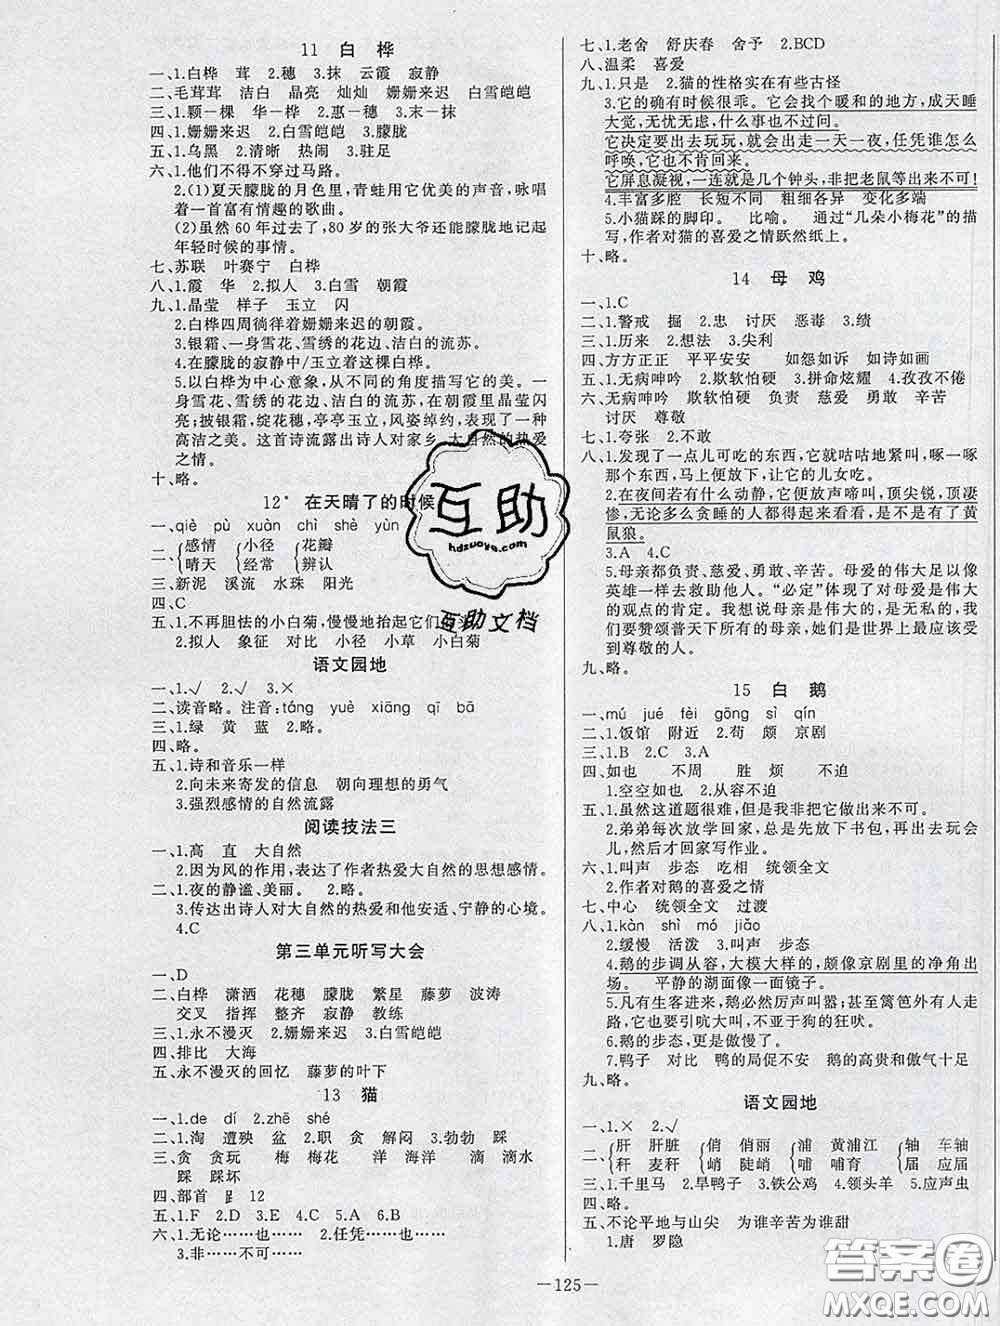 11 白 桦
一、1.白桦 茸 2.穗 3.抹 云霞 寂静
二、毛茸茸 洁白 晶亮 灿灿 姗姗来迟 白雪皑皑
三、1.颗一棵 华一桦 2.惠一穗 3.末一抹
四、1.姗姗来迟 2.白雪皑皑 3.朦胧
五、1.乌黑 2.清晰 热闹 3.驻足
六、1.他们不得不穿过马路。
2.(1)夏天朦胧的月色里,青蛙用它优美的声音,咏唱
着一首富有情趣的歌曲。
(2)虽然60年过去了,80岁的张大爷还能朦胧地记起
年轻时候的事情。
七、苏联 叶赛宁 白桦
八、1.霞 华 2.拟人 3.白雪 朝霞
九、1.晶莹 样子 玉立 闪
2.白桦四周徜徉着姗姗来迟的朝霞。
3.银霜、一身雪花、雪绣的花边、洁白的流苏。
4.在朦胧的寂静中/玉立着这棵白桦。
5.以白桦为中心意象,从不同的角度描写它的美。一
身雪花、雪绣的花边、洁白的流苏,在朝霞里晶莹闪
亮;披银霜,绽花穗,亭亭玉立,风姿绰约,表现了一种
高洁之美。这首诗流露出诗人对家乡、大自然的热爱
之情。
十、略。
12* 在天晴了的时候
一、qiè pù xuàn chì shè yùn
二、{感情 {小径 {花瓣
晴天 经常 辨认
三、新泥 溪流 水珠 阳光
四、C
五、1.不再胆怯的小白菊,慢慢地抬起它们
2.拟人 象征 对比 小径 小草 小白菊
语文园地
一、1.√ 2.√ 3.×
二、读音略。注音:táng yuè xiāng qī bā
三、1.绿 黄 蓝 2.略。
四、略。
五、1.诗和音乐一样
2.向未来寄发的信息 朝向理想的勇气
3.强烈感情的自然流露
阅读技法三
一、1.高 直 大自然
2.因为风的作用,表达了作者热爱大自然的思想感情。
二、1.夜的静谧、美丽。 2.略。
3.传达出诗人对大自然的热爱和他安适、宁静的心境。
4.C
第三单元听写大会
一、D
二、白桦 潇洒 花穗 朦胧 繁星 藤萝 波涛
交叉 指挥 整齐 寂静 教练
三、1.永不漫灭 2.姗姗来迟 3.白雪皑皑
四、排比 大海
五、永不漫灭的回忆 藤萝的叶下
13 猫
一、1.de dí 2.zhē shé
二、1.淘 遭殃 盆 2.职 贪 解闷 3.勃勃 踩
三、贪 贪玩 梅 梅花 洋 海洋 滴 滴水
踩 踩坏
四、部首 𧾷 12
五、1.F 2.D 3.E 4.C 5.A 6.B
六、1.无论……也…… 2.任凭……也……
3.非……不可……
七、1.老舍 舒庆春 舍予 2.BCD
八、温柔 喜爱
九、1.只是 2.猫的性格实在有些古怪
3.它的确有时候很乖。它会找个暖和的地方,成天睡
大觉,无忧无虑,什么事也不过问。
它决定要出去玩玩,就会出走一天一夜,任凭谁怎么
呼唤,它也不肯回来。
它屏息凝视,一连就是几个钟头,非把老鼠等出来不可!
4.丰富多腔 长短不同 粗细各异 变化多端
5.小猫踩的脚印。 比喻。 通过“几朵小梅花”的描
写,作者对猫的喜爱之情跃然纸上。
十、略。
14 母 鸡
一、1.C
二、1.警戒 掘 2.忠 讨厌 恶毒 3.绩
三、1.历来 2.想法 3.尖利
四、方方正正 平平安安 如怨如诉 如诗如画
五、1.无病呻吟 2.欺软怕硬 3.拼命炫耀 4.孜孜不倦
六、无病呻吟 欺软怕硬 负责 慈爱 勇敢 辛苦
讨厌 尊敬
七、1.夸张 2.不敢
八、1.发现了一点儿可吃的东西,它就咕咕地紧叫,啄一啄
那个东西,马上便放下,让它的儿女吃。
2.在夜间若有什么动静,它便放声啼叫,顶尖锐,顶凄
惨,无论多么贪睡的人都得起来看看,是不是有了黄
鼠狼。
3.A 4.C
5.母亲都负责、慈爱、勇敢、辛苦。母爱的伟大足以像
英雄一样去救助他人。“必定”体现了对母爱是伟大的
的观点的肯定。我想说母亲是伟大的,是无私的,我
们要赞颂普天下所有的母亲,她们是世界上最应该受
到尊敬的人。
九、略。
15 白 鹅
一、mú jué fèi gōng sì qín
二、1.饭馆 附近 2.苟 颇 京剧
三、1.B 2.C 3.A
四、如也 不周 胜 烦 不迫
1.空空如也 2.从容不迫
五、1.虽然这道题很难,但是我非把它做出来不可。
2.弟弟每次放学回家,总是先放下书包,再出去玩会
儿,然后才回家写作业。
六、1.叫声 步态 吃相 统领全文
2.作者对鹅的喜爱之情
七、中心 统领全文 过渡
八、1.kàn shì mó jiǎo
2.缓慢 活泼 3.叫声 步态
4.鹅的步调从容,大模大样的,颇像京剧里的净角出
场。 平静的湖面像一面镜子。
5.凡有生客进来,鹅必然厉声叫嚣;甚至篱笆外有人走
路,它也要引吭大叫,不亚于狗的狂吠。
6.鹅的步态,更是傲慢了。
7.鸭子 对比 鸭的局促不安 鹅的高贵和傲气十足
九、略。
语文园地
一、1.× 2.√
二、{肝 肝脏 {俏 俏丽 {浦 黄浦江 {轴 车轴
秆 麦秆 峭 陡峭 哺 哺育 届 应届
三、1.千里马 2.旱鸭子 3.铁公鸡 4.领头羊 5.应声虫
四、略。
五、不论平地与山尖 为谁辛苦为谁甜
1.唐 罗隐
—125—
互助
hdzuoye.com
互助文档
答案圈
MXQE.COM